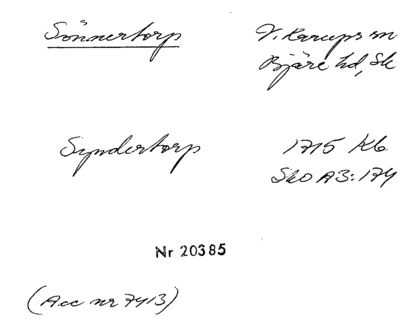 Sönnertorp V. Karups sn
Bjäre hd, Sk
Syndertorp 1715 Kb
SkO A3:174
Nr 20385
(Acc nr 7413)